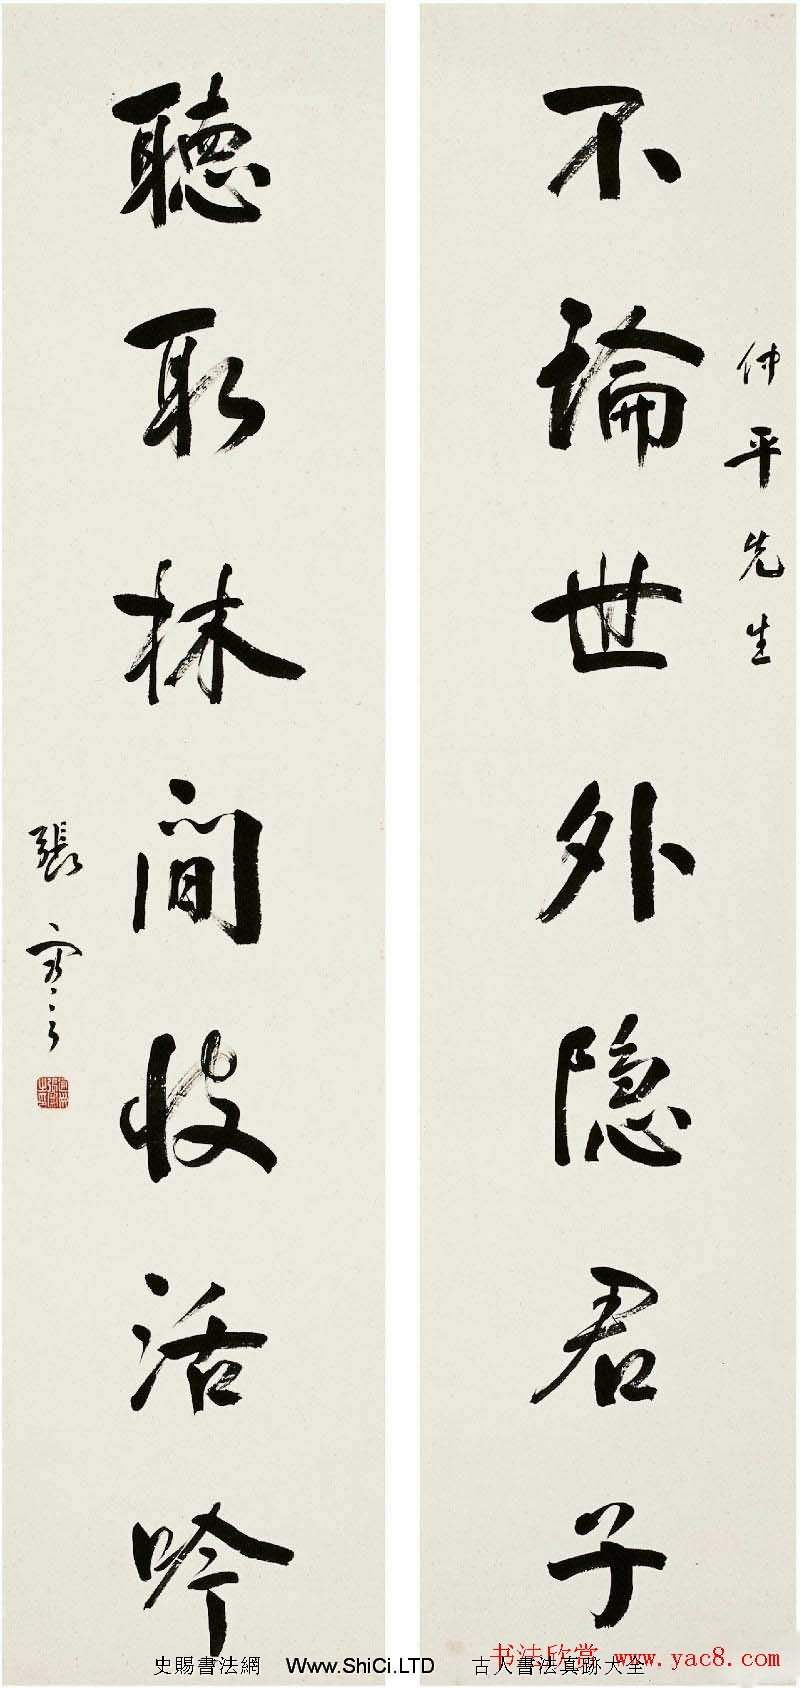 仲平先生
不論世外隐君子
聽取林間快活吟
張謇
书法欣赏 www.yac8.com
史賜書法網 Www.ShiCi.LTD 古人書法真跡大全